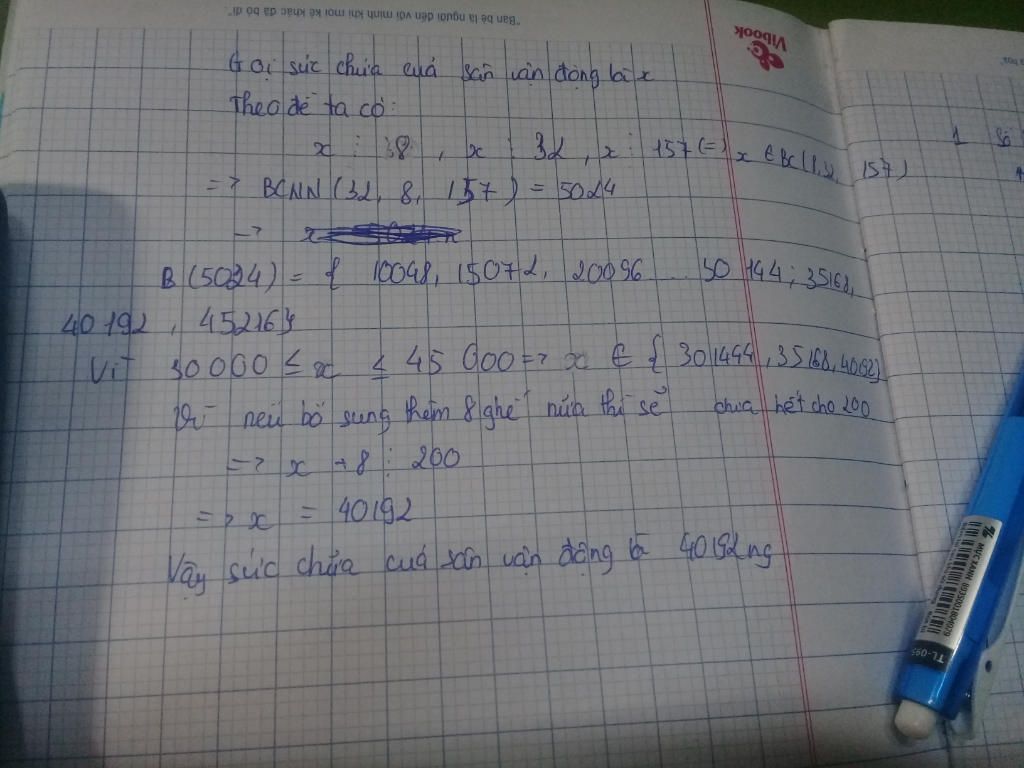 "Bạn bè là người đến với mình khi mọi kẻ khác đã bỏ đi".
Vibook
Gọi sức chứa cuả sân vận động là x
Theo đề ta có:
x ⋮ 8 , x ⋮ 32 , x ⋮ 157 (=) x ∈ BC(8,32, 157)
=> BCNN (32, 8, 157) = 5024
B (5024) = { 10048, 15072, 20096 ... 30 144; 35168,
40192 , 45216}
Vì 30000 ≤ x ≤ 45 000 => x ∈ { 301444 , 35168, 40192}
Vì nếu bổ sung thêm 8 ghế nữa thì sẽ chia hết cho 200
=> x + 8 ⋮ 200
=> x = 40192
Vậy sức chứa cuả sân vận động là 40192 ng
1 Số
MỰC XANH
8935001804079
TL-095